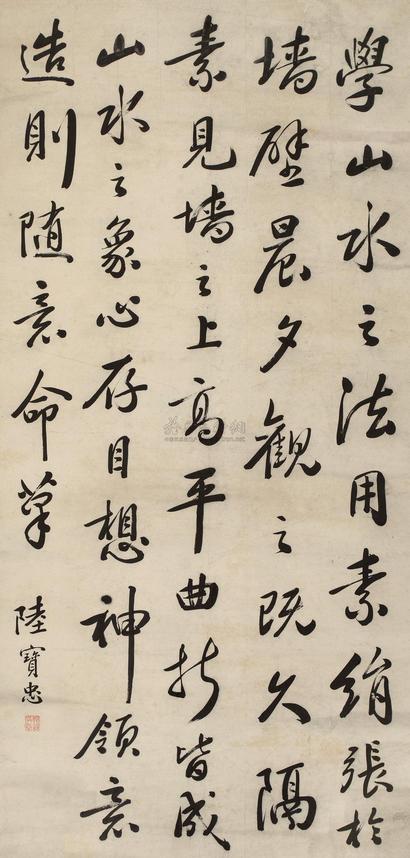 學山水之法用素絹張於
墙壁晨夕觀之既久隔
素見墙之上高平曲折皆成
山水之象心存目想神領意
造則随意命筆
陸寶忠